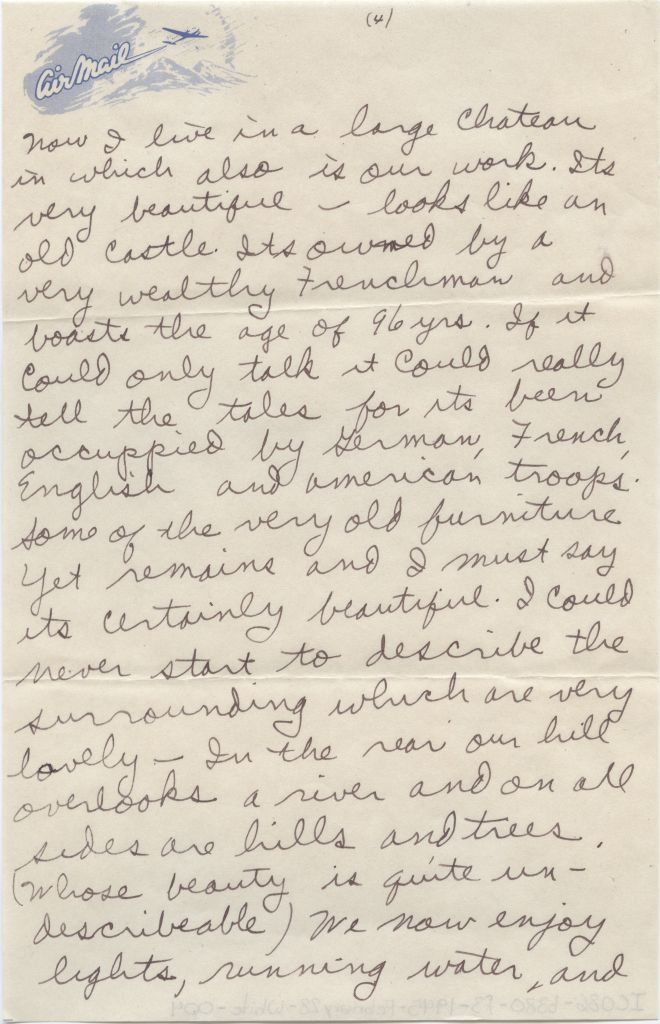 (4)
Air Mail
Now I live in a large Chateau
in which also is our work. Its
very beautiful – looks like an
old castle. Its owned by a
very wealthy Frenchman and
boasts the age of 96 yrs. If it
could only talk it could really
tell the tales for its been
occuppied by German, French,
English and american troops.
Some of the very old furniture
yet remains and I must say
its certainly beautiful. I could
never start to describe the
surrounding which are very
lovely – In the rear our hill
overlooks a river and on all
sides are hills and trees.
(Whose beauty is quite un-
describeable) We now enjoy
lights, running water, and